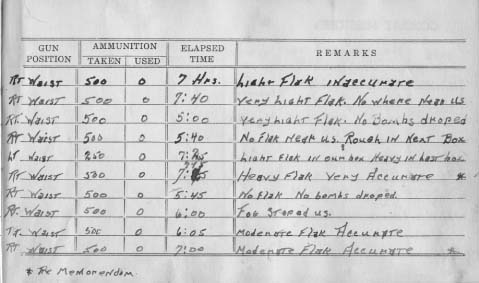 GUN POSITION AMMUNITION TAKEN USED ELAPSED TIME REMARKS
Rt Waist 500 0 7 Hrs. Light Flak inaccurate
Rt Waist 500 0 7:40 Very Light Flak. No where Near us
Rt Waist 500 0 5:00 Very Light Flak. No Bombs droped
Rt Waist 500 0 5:40 No Flak Near us. Rough in Next Box
Lt Waist 250 0 Light Flak in our box Heavy in last box
Rt Waist 500 0 Heavy Flak Very Accurate *
Rt Waist 500 0 5:45 No Flak No bombs droped.
Rt Waist 500 0 6:00 Fog Stoped us.
Waist 500 0 6:05 Moderate Flak Accurate
Rt Waist 500 0 7:00 Moderate Flak Accurate *
* Memorendom